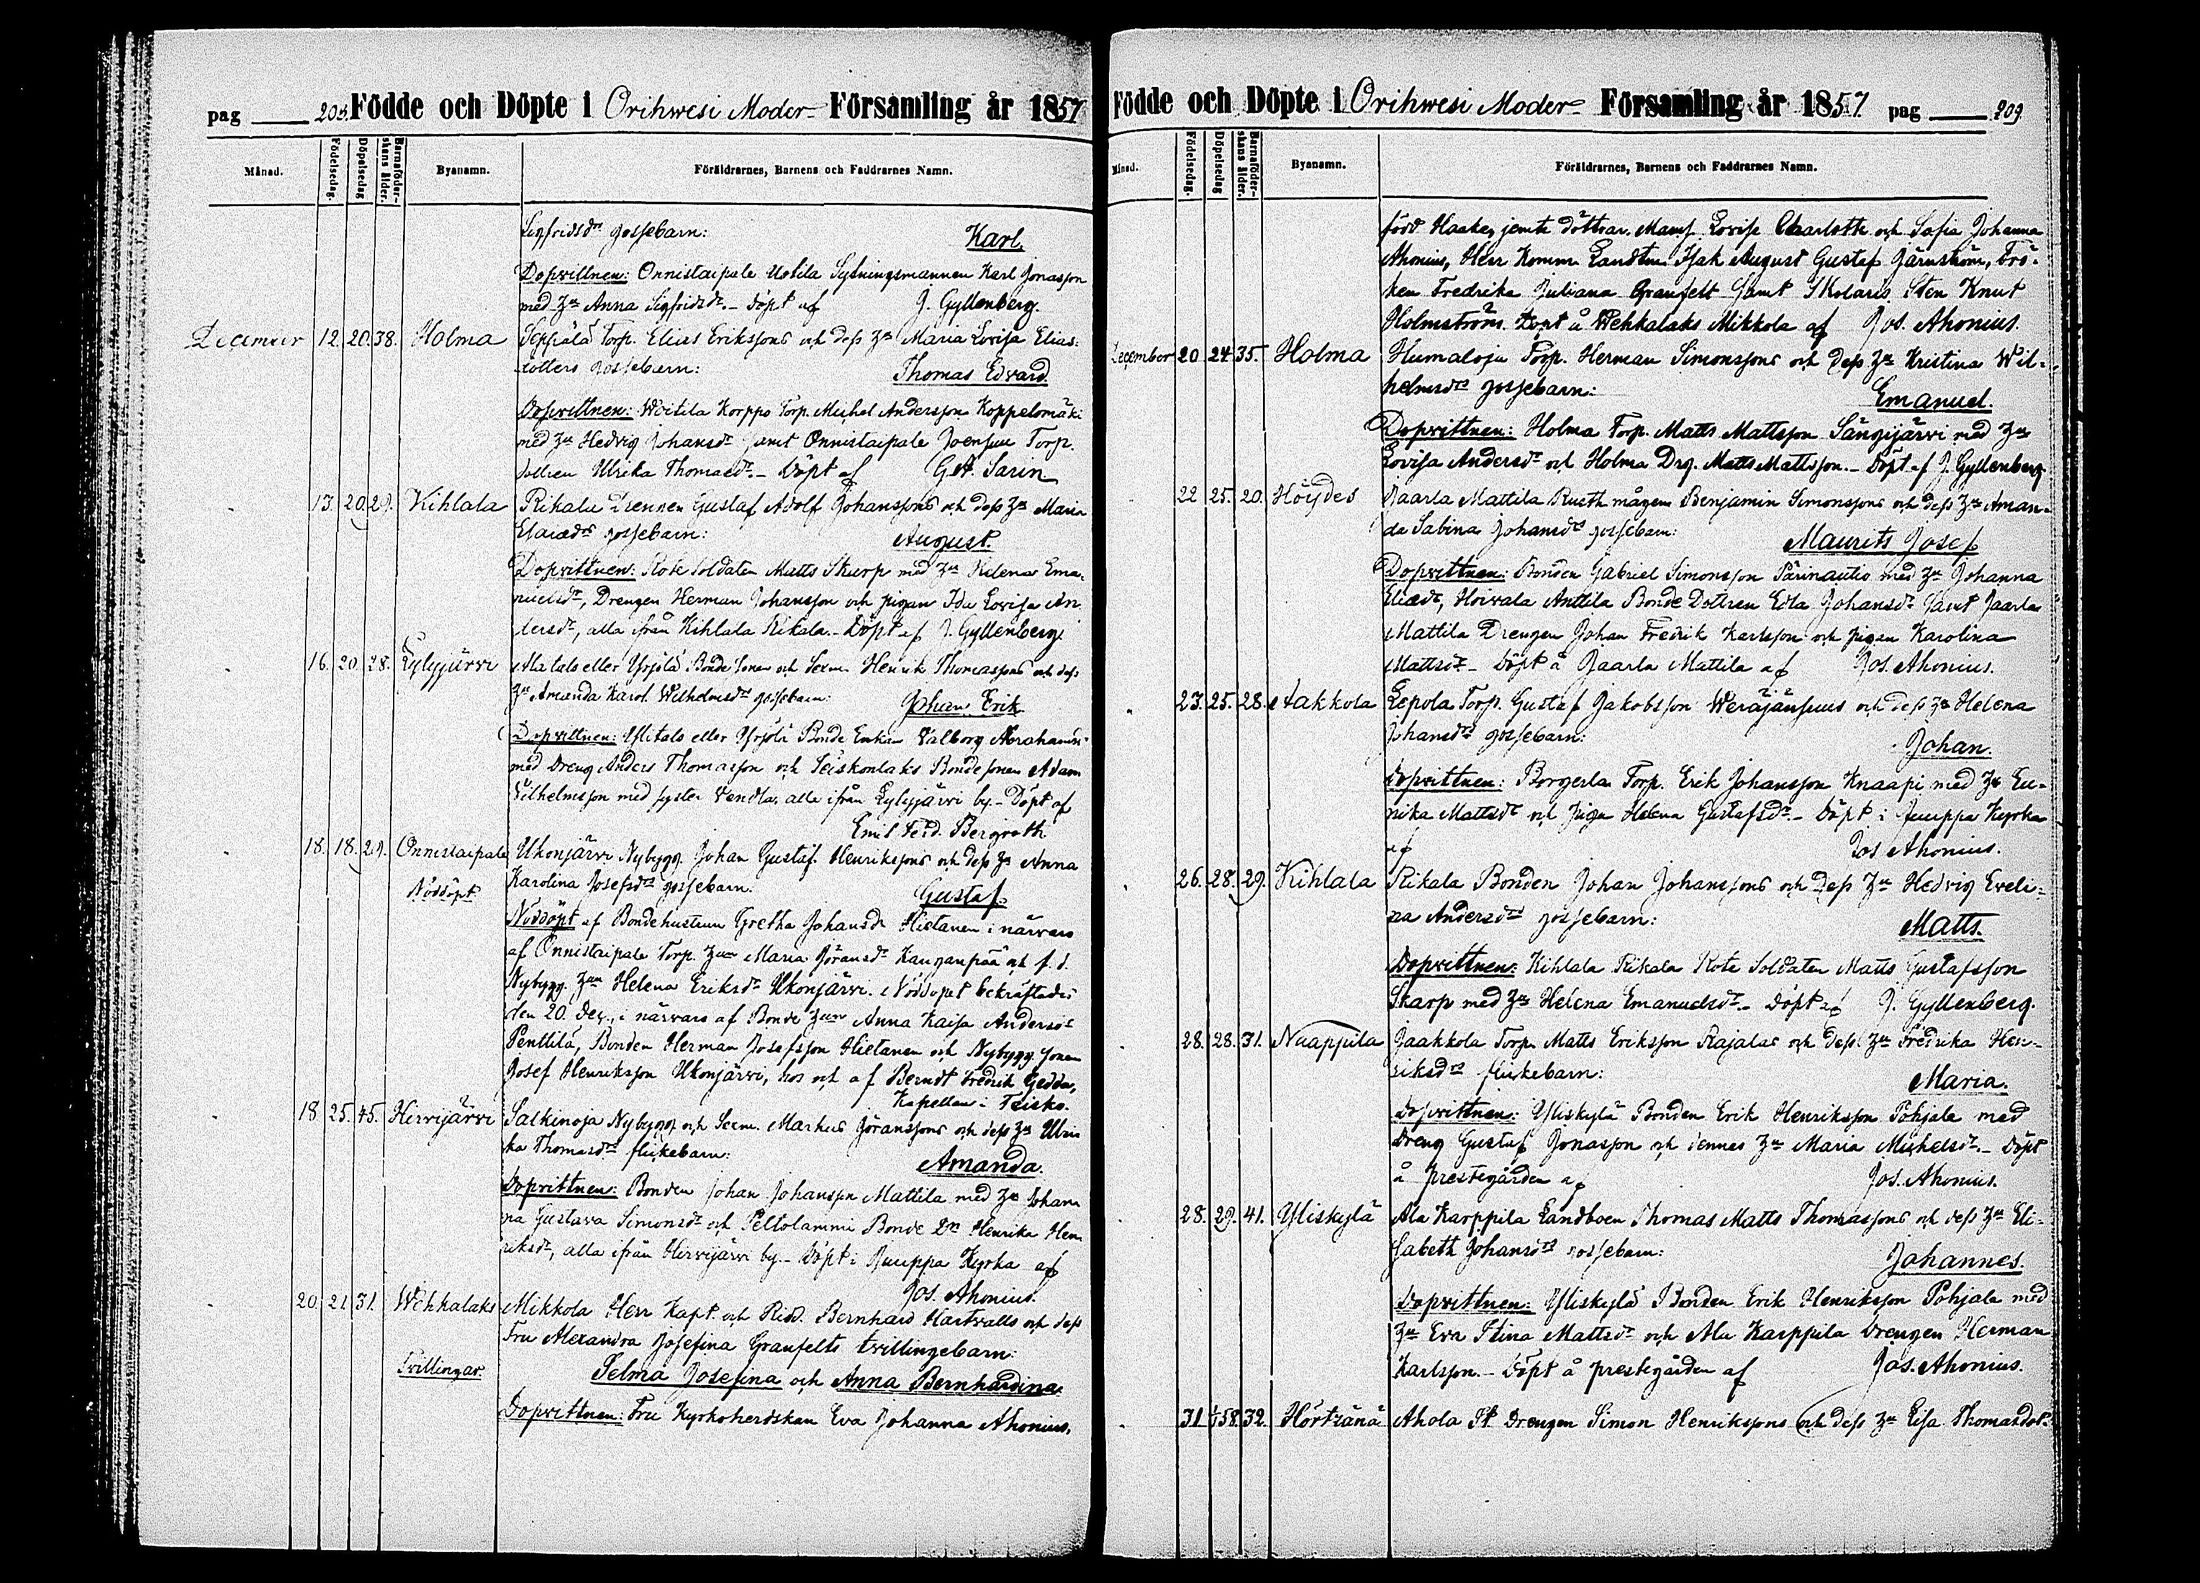 pag 208. Födde och Döpte i Orihwesi Moder- Församling år 1857
Månad. Födelsedag. Döpelsedag Barnaföderskans ålder. Byanamn. Föräldrarnes, Barnens och Faddrarnes Namn.
Sigfridsdrs gossebarn: Karl.
Dopvittnen: Onnistaipale Uotila Sytningsmannen Karl Jonasson
med Hu Anna Sigfridsdr. – Döpt af J. Gyllenberg.
December 12. 20. 38. Holma Seppälä Torp. Elias Erikssons och dess Hu Maria Lovisa Elias-
dotters gossebarn: Thomas Edvard.
Dopvittnen: Woitila Korppo Torp. Michel Andersson Koppelomäki
med Hu Hedvig Johansdr samt Onnistaipale Joensuu Torp.
dottren Ulrika Thomasdr. – Döpt af G. A. Sarin
13. 20. 29. Kihlala Rikala Drengen Gustaf Adolf Johanssons och dess Hu Maria
Eliædrs gossebarn: August.
Dopvittnen: Rote Soldaten Matts Skarp med Hu Helena Ema-
nuelsdr, Drengen Herman Johansson och pigan Ida Lovisa An-
dersdr, alla ifrån Kihlala Rikala. – Döpt af J. Gyllenberg
16. 20. 28. Lylyjärvi Matals eller Yrjölä Bonde Sonen och Sexm. Henrik Thomassons och dess
Hu Amanda Karol. Wilhelmsdrs gossebarn: Johan Erik
Dopvittnen: Matals eller Yrjölä Bonde Enkan Valborg Abrahamsdr
med Dreng Anders Thomasson och Seiskonlaks Bondesonen Adam
Vilhelmsson med syster Vendla, alla ifrån Lylyjärvi by. – Döpt af
Emil Ferd. Bergroth
18. 18. 29. Onnistaipale Ukonjärvi Nybygg. Johan Gustaf Henrikssons och dess Hu Anna
Nöddöpt Karolina Josefsdrs gossebarn: Gustaf.
Nöddöpt af Bondehustrun Gretha Johansdr Hietanen i närvaro
af Onnistaipale Torp. Hun Maria Göransdr Kanganpää och f. d.
Nybygg. Hun Helena Eriksdr Ukonjärvi. Nöddopet bekräftades
den 20. Dec., i närvaro af Bonde Hun Anna Kaisa Andersdr
Penttilä, Bonden Herman Josefsson Hietanen och Nybygg. sonen
Josef Henriksson Ukonjärvi, hos och af Berndt Fredrik Gedda,
Kapellan i Teisko.
18. 25. 45. Hirvijärvi Salkinoja Nybygg. och Sexm. Markus Göranssons och dess Hu Ulri-
ka Thomasdrs flickebarn: Amanda.
Dopvittnen: Bonden Johan Johansson Mattila med Hu Johan-
na Gustava Simonsdr och Peltolammi Bonde Dr Henrika Hen-
riksdr, alla ifrån Hirvijärvi by. – Döpt i Juuppa Kyrka af
Jos. Ahonius.
20. 21. 31. Wehkalaks Mikkola Herr Kapt. och Ridd. Bernhard Hartvalls och dess
Fru Alexandra Josefina Granfelts tvillingebarn:
Tvillingar. Selma Josefina och Anna Bernhardina.
Dopvittnen: Fru Kyrkoherdskan Eva Johanna Ahonius,
Födde och Döpte i Orihwesi Moder- Församling år 1857. pag 209.
Månad. Födelsedag. Döpelsedag Barnaföderskans ålder. Byanamn. Föräldrarnes, Barnens och Faddrarnes Namn.
född Haake, jemte döttrar. Mams. Lovise Charlotte och Sofia Johanna
Ahonius, Herr Komm. Landtm. Isak August Gustaf Järnström, Frö-
ken Fredrika Juliana Granfelt samt Skolaris Sten Knut
Holmström. Döpt å Wehkalaks Mikkola af Jos. Ahonius.
December 20. 24. 35. Holma Humaloja Torp. Herman Simonssons och dess Hu Kristina Wil-
helmsdrs gossebarn: Emanuel.
Dopvittnen: Holma Torp. Matts Mattsson Sängijärvi med Hu
Lovisa Andersdr och Holma Drg. Matts Mattsson. – Döpt af J. Gyllenberg
22. 25. 20. Höydes Jaarla Mattila Rusth. mågen Benjamin Simonssons och dess Hu Aman-
da Sabina Johansdrs gossebarn: Maurits Josef
Dopvittnen: Bonden Gabriel Simonsson Pärinautio med Hu Johanna
Eliædr, Hoivala Anttila Bonde Dottren Edla Johansdr samt Jaarla
Mattila Drengen Johan Fredrik Karlsson och pigan Karolina
Mattsdr. – Döpt å Jaarla Mattila af Jos. Ahonius.
23. 25. 28. Hakkola Lepola Torp. Gustaf Jakobsson Weräjänsuus och dess Hu Helena
Johansdrs gossebarn: Johan.
Dopvittnen: Borgerla Torp. Erik Johansson Knaapi med Hu Eu-
rika Mattsdr och pigan Helena Gustafsdr. – Döpt i Juuppa Kyrka
af Jos. Ahonius.
26. 28. 29. Kihlala Rikala Bonden Johan Johanssons och dess Hu Hedvig Eveli-
na Andersdrs gossebarn: Matts.
Dopvittnen: Kihlala Rikala Rote Soldaten Matts Gustafsson
Skarp med Hu Helena Emanuelsdr. – Döpt af J. Gyllenberg.
28. 28. 31. Naappila Jaakkola Torp. Matts Eriksson Rajalas och dess Hu Fredrika Hen-
riksdrs flickebarn: Maria.
Dopvittnen: Yliskylä Bonden Erik Henriksson Pohjala med
Dreng Gustaf Jonasson och dennes Hu Maria Michelsdr. – Döpt
å prestegården af Jos. Ahonius.
28. 29. 41. Yliskylä Ala Karppila Landboen Thomas Matts Thomassons och dess Hu Eli-
sabeth Johansdrs gossebarn: Johannes.
Dopvittnen: Yliskylä Bonden Erik Henriksson Pohjala med
Hu Eva Stina Mattsdr och Ala Karppila Drengen Herman
Karlsson. – Döpt å prestegården af Jos. Ahonius.
31. 1/1 58. 32. Hörtzänä Ahola St. Drengen Simon Henrikssons och dess Hu Lisa Thomasdot-